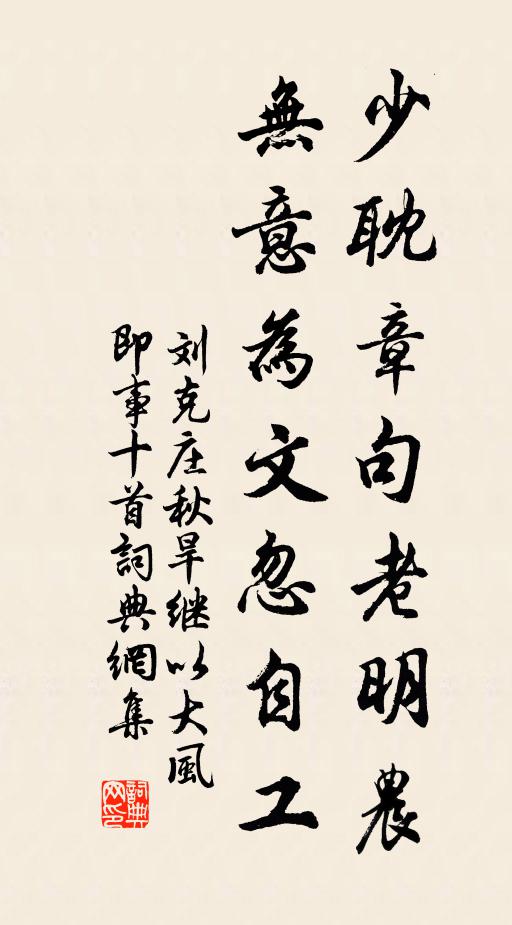 少耽章句老明農
無意為文忽自工
刘克庄秋旱继以大風
即事十首詞典網集
詞典
网印